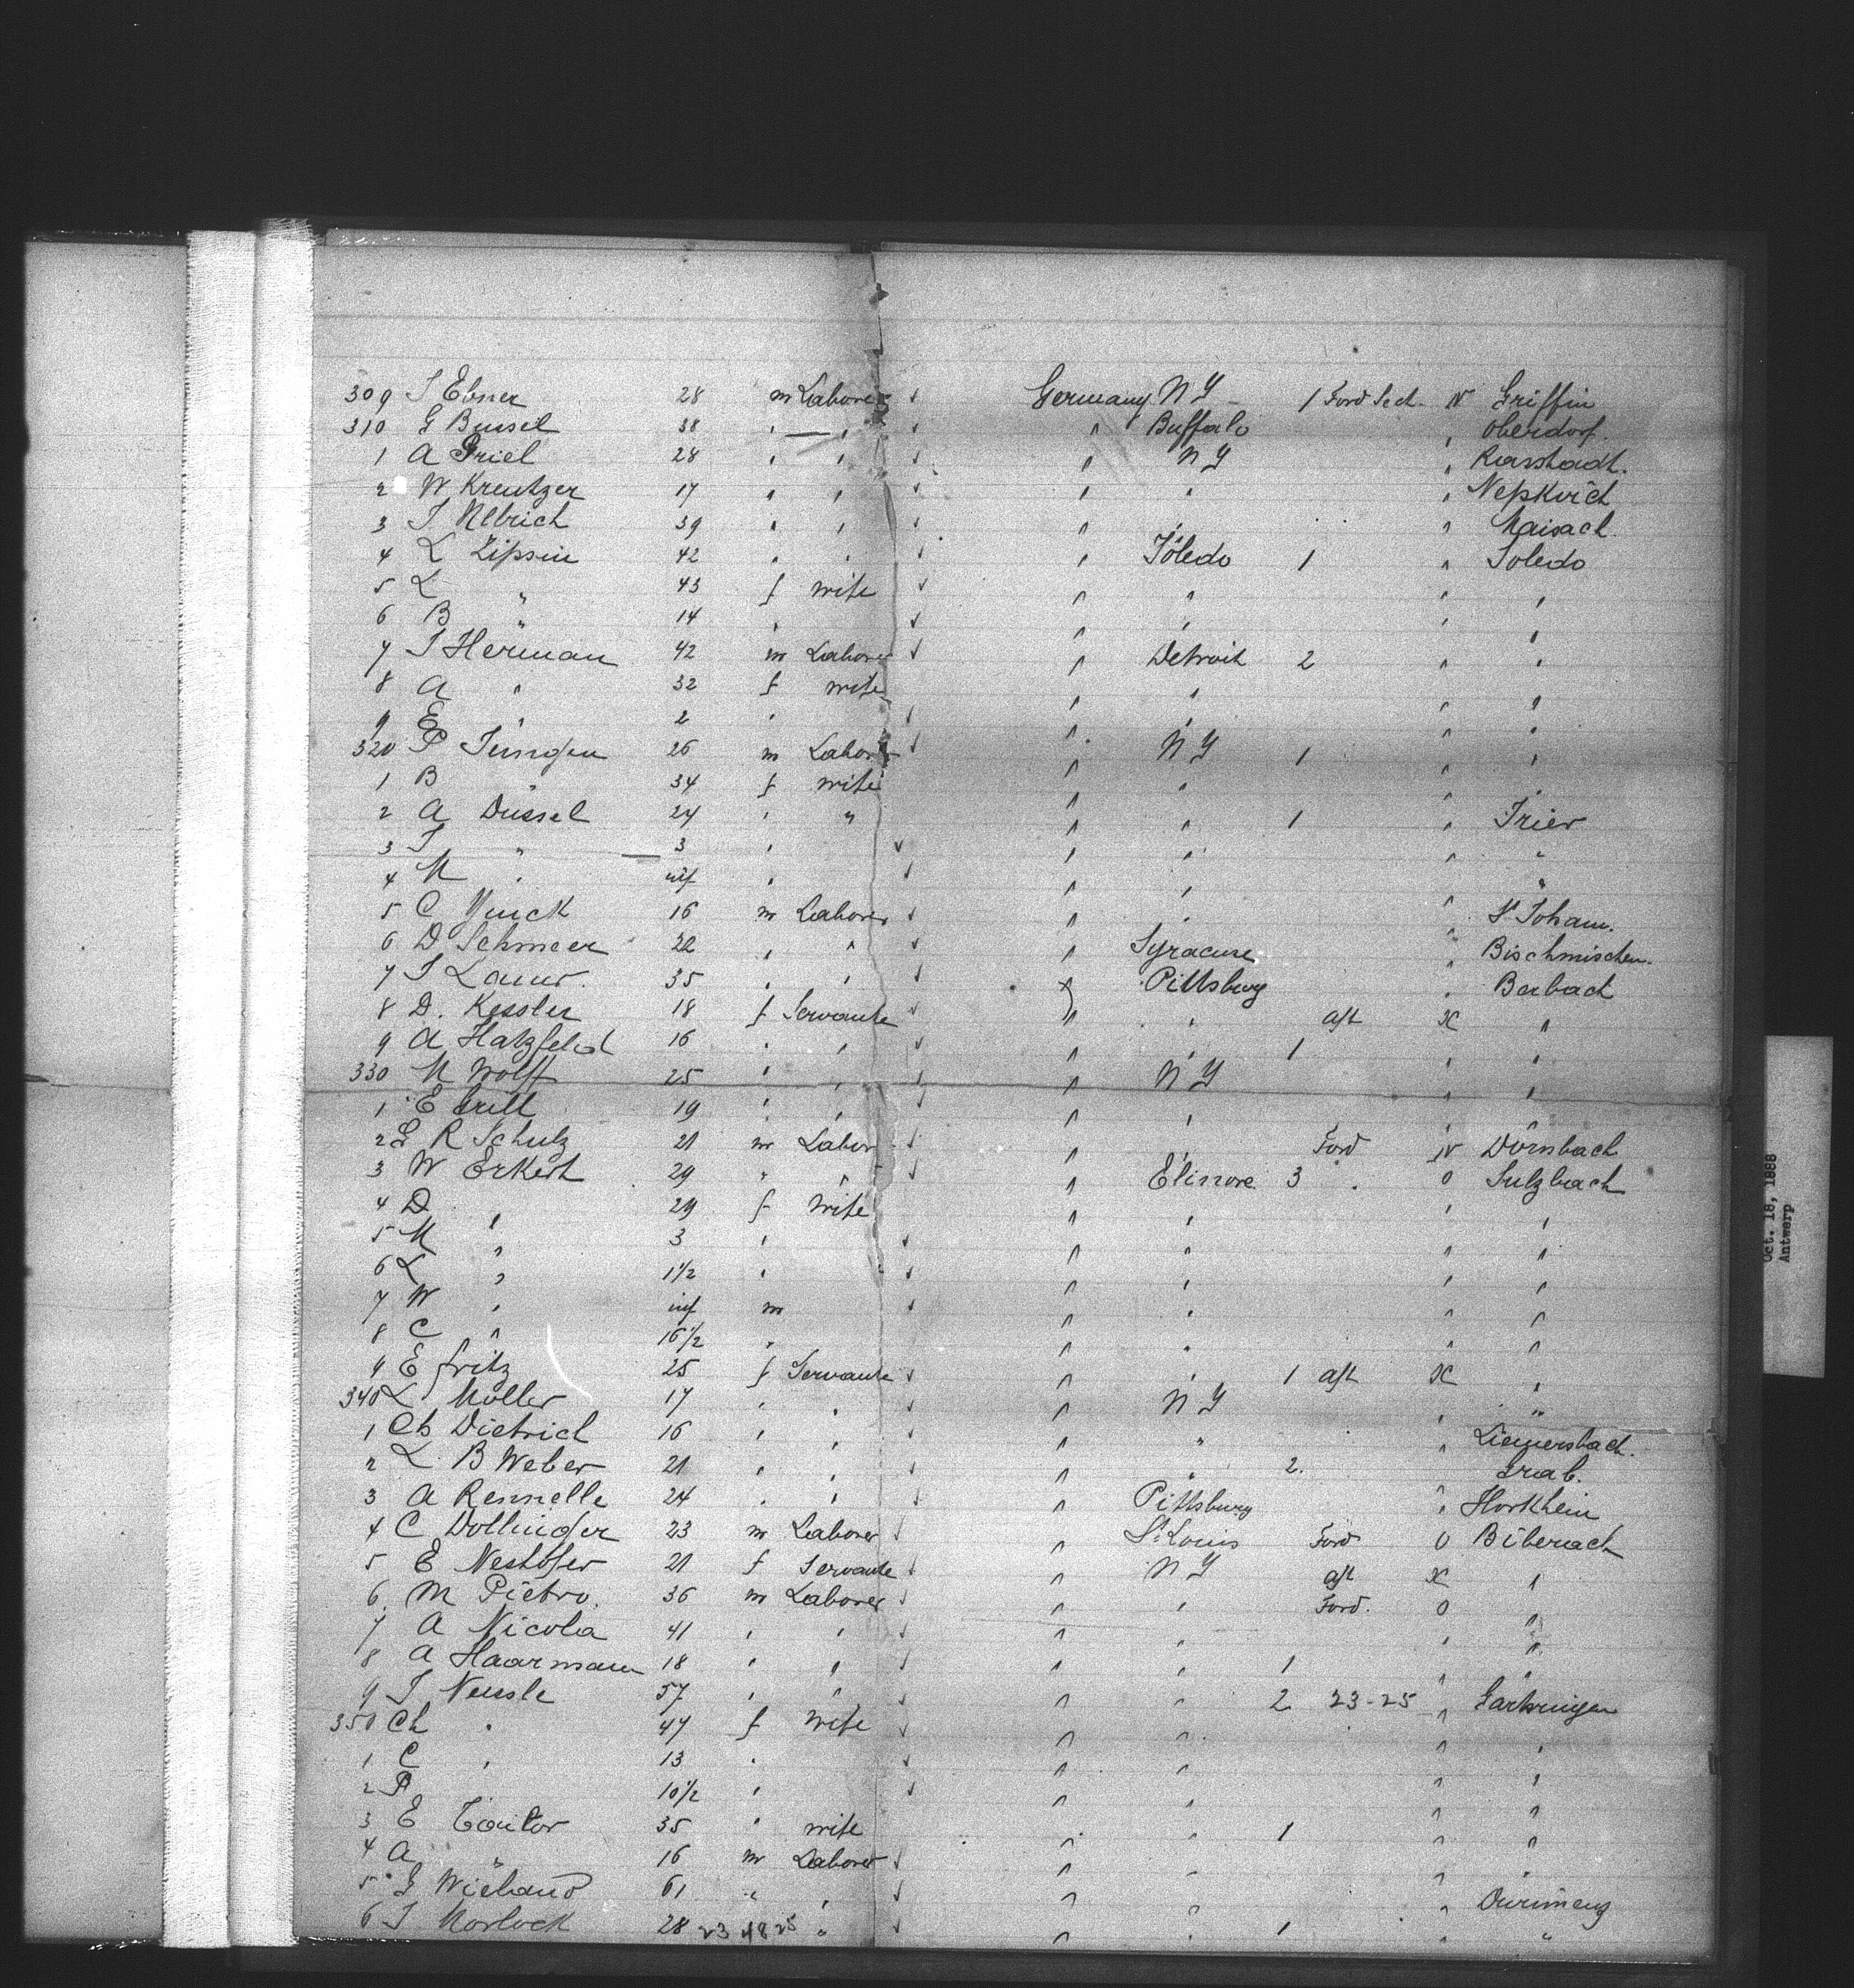 309 J Ebner 28 m Laborer ✓ Germany N Y - 1 Ford Sect. N Griffin
310 G Bussel 38 " — " ✓ " Buffalo " Oberdorf.
1 A Priel 28 " " ✓ " N Y "
2 W Kreutzer 17 " " ✓ " " "
3 J Ulbrich 39 " " ✓ " " " Maisach.
4 L Lipsin 42 " " ✓ " Toledo 1 " Toledo
5 L " 43 f wife ✓ " " " "
6 B " 14 " ✓ " " " "
7 J Herman 42 m Laborer ✓ " Detroit 2 " "
8 A " 32 f wife " " " "
9 E " 2 " ✓ " " " "
320 P 26 m Labor ✓ " N Y 1 " "
1 B " 34 f wife " " " "
2 A Düssel 24 " " " " 1 " Trier
3 J " 3 " ✓ " " " "
4 M " inf " ✓ " " " "
5 C 16 m Laborer ✓ " " " St Johann.
6 D Schmeer 22 " " ✓ " Syracuse " Bischmischen.
7 J Lauer. 35 " " ✓ " Pittsburg " Berbach
8 D. Kessler 18 f Servante ✓ " " aft K "
9 A Hatzfeld 16 " " ✓ " " 1 " "
330 M Wolff 25 " " ✓ " N Y " "
1 E Grill 19 " " ✓ " " " "
2 G R Schulz 21 m Labor ✓ " " Ford N Dörnbach
3 W Erkert 29 " " ✓ " Elinore. 3 " O Sulzbach
4 D " 29 f Wife " " " "
5 M " 3 " ✓ " " " "
6 L " 1 1/2 " ✓ " " " "
7 W " inf m ✓ " " " "
8 C " 16 1/2 " " " " "
9 E Fritz 25 f Servante ✓ " " 1 aft K "
340 L Müller 17 " " ✓ " N Y " "
1 Ch Dietrich 16 " " ✓ " " "
2 L B Weber 21 " " ✓ " " 2. Grab.
3 A Rennelle 24 " " ✓ " Pittsburg " Horkheim
4 C Dollinger 23 m Laborer ✓ " St Louis Ford O Biberach
5 E Nesthofer 21 f Servante ✓ " N Y aft K "
6. M Pietro. 36 m Laborer ✓ " " Ford. O "
7 A Nicola 41 " " ✓ " " " "
8 A Haarmann 18 " " ✓ " " 1 " "
9 J Neusle 57 " " ✓ " " 2 23-25 "
350 Ch " 47 f Wife ✓ " " " "
1 C " 13 " ✓ " " " "
2 P 10 1/2 " ✓ " " " "
3 E 35 " wife " " 1 " "
4 A " 16 m Laborer ✓ " " " "
5 G Wieland 61 " " ✓ " " "
6 J Morlock 28 23 48 25 " ✓ " " 1 " "
Oct. 18, 1888
Antwerp